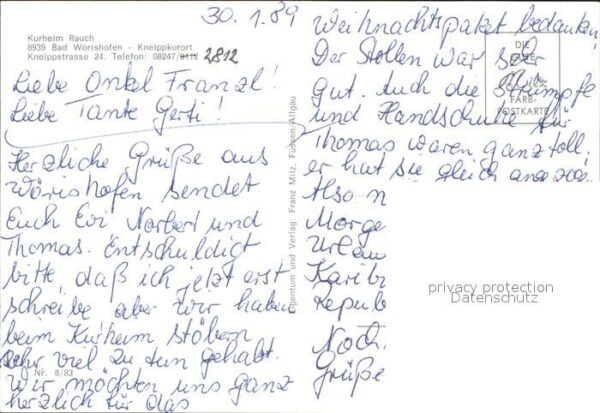 30.1.89
Kurheim Rauch
8939 Bad Wörishofen - Kneippkurort
Kneippstrasse 24, Telefon: 08247/8112 2812
Liebe Onkel Franzl!
Liebe Tante Gerti!
Herzliche Grüße aus
Wörishofen sendet
Euch Evi Norbert und
Thomas. Entschuldigt
bitte, daß ich jetzt erst
schreibe aber wir haben
beim Kurheim stöbern
sehr viel zu tun gehabt.
Wir möchten uns ganz
herzlich für das
Nr. 8/83
Eigentum und Verlag: Franz Milz, Füssen/Allgäu
Weihnachtspaket bedanken
Der Stollen war sehr
gut. Auch die Strümpfe
und Handschuhe für
Thomas waren ganz toll.
er hat sie gleich angezog.
Also n
Morge
Urlau
Karib
Repub
Noch
Grüße
DIE
Milz
FARB-
POSTKARTE
privacy protection
Datenschutz